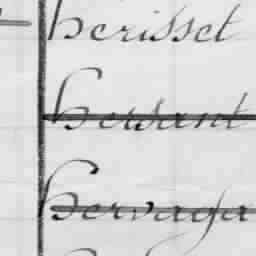 herisset
hersant
hervaga